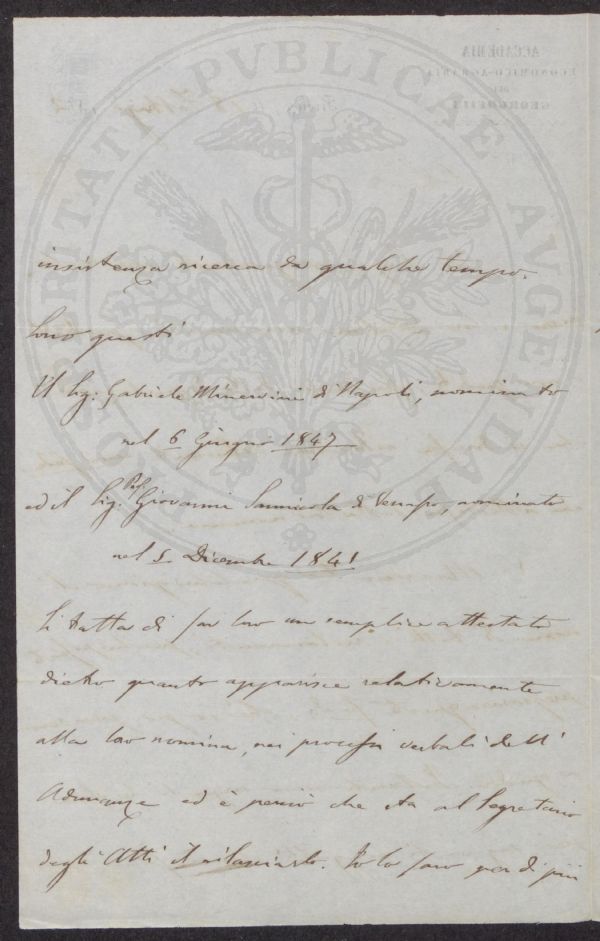 PROSPERITATI PUBLICAE AUGENDAE
ACCADEMIA
ECONOMICO-AGRARIA
DEI
GEORGOFILI
insistenza ricerca da qualche tempo.
Sono questi
Il Sig: Gabriele Minervini di Napoli, nominato
nel 6 Giugno 1847
ed il Sig: Prof. Giovanni Sannicola di Venafro, nominato
nel 5 Dicembre 1841
Si tratta di far loro un semplice attestato
dietro quanto apparisce relativamente
alla loro nomina, nei processi verbali dell'
Adunanze ed è perciò che sta al Segretario
degli Atti il rilasciarlo. Io lo farò per di più